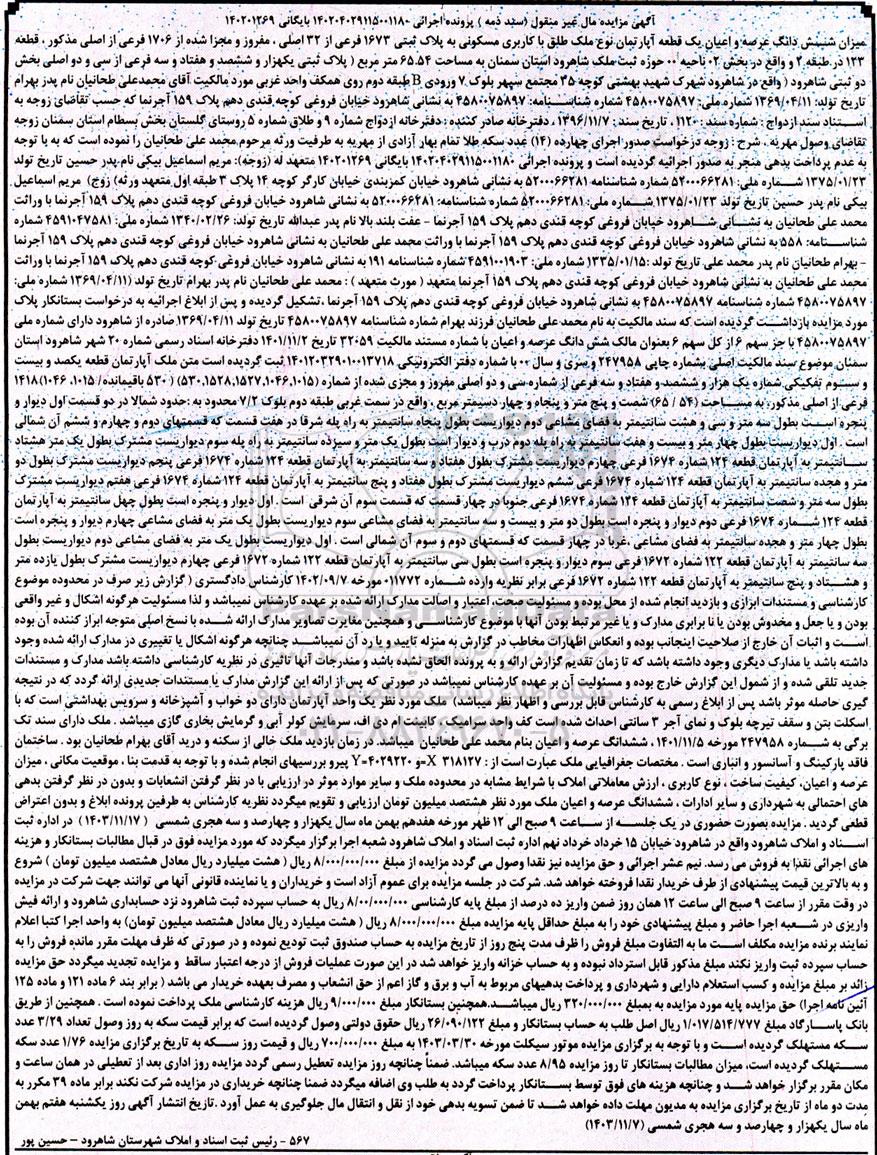 آگهی مزایده مال غیر منقول (سند ذمه) پرونده اجرائی ۱۴۰۲۰۴۰۲۹۱۱۵۰۰۱۱۸۰ بایگانی ۱۴۰۲۰۱۲۶۹
میزان شش دانگ عرصه و اعیان یک قطعه آپارتمان نوع ملک طلق با کاربری مسکونی به پلاک ثبتی ۱۶۷۳ فرعی از ۳۲ اصلی ، مفروز و مجزا شده از ۱۷۰۶ فرعی از اصلی مذکور ، قطعه
۱۲۳ در طبقه ۲ و واقع در بخش ۰۲ ناحیه ۰۰ حوزه ثبت ملک شاهرود استان سمنان به مساحت ۶۵.۵۴ متر مربع ( پلاک ثبتی یکهزار و ششصد و هفتاد و سه فرعی از سی و دو اصلی بخش
دو ثبتی شاهرود ) واقع در شاهرود شهرک شهید بهشتی کوچه ۳۵ مجتمع سپهر بلوک ۷ ورودی B طبقه دوم روی همکف واحد غربی مورد مالکیت آقای محمدعلی طحانیان نام پدر بهرام
تاریخ تولد: ۱۳۶۹/۰۴/۱۱ شماره ملی: ۴۵۸۰۰۷۵۸۹۷ شماره شناسنامه: ۴۵۸۰۰۷۵۸۹۷ به نشانی شاهرود خیابان فروغی کوچه قندی دهم پلاک ۱۵۹ آجرنما که حسب تقاضای زوجه به
استناد سند ازدواج : شماره سند : ۱۱۲۰ ، تاریخ سند : ۱۳۹۶/۱۱/۷ ، دفترخانه صادر کننده : دفترخانه ازدواج شماره ۹ و طلاق شماره ۵ روستای گلستان بخش بسطام استان سمنان زوجه
تقاضای وصول مهریه ، شرح : زوجه درخواست صدور اجرای چهارده (۱۴) عدد سکه طلا تمام بهار آزادی از مهریه به طرفیت ورثه مرحوم محمد علی طحانیان را نموده است که به با توجه
به عدم پرداخت بدهی منجر به صدور اجرائیه گردیده است و پرونده اجرائی ۱۴۰۲۰۴۰۲۹۱۱۵۰۰۱۱۸۰ بایگانی ۱۴۰۲۰۱۲۶۹ متعهد له (زوجه): مریم اسماعیل بیکی نام پدر حسین تاریخ تولد
۱۳۷۵/۰۱/۲۳ شماره ملی: ۵۲۰۰۰۶۶۲۸۱ شماره شناسنامه ۵۲۰۰۰۶۶۲۸۱ به نشانی شاهرود خیابان کمزبندی خیابان کارگر کوچه ۱۴ پلاک ۳ طبقه اول متعهد ورثه) زوج) مریم اسماعیل
بیکی نام پدر حسین تاریخ تولد ۱۳۷۵/۰۱/۲۳ شماره ملی: ۵۲۰۰۰۶۶۲۸۱ شماره شناسنامه: ۵۲۰۰۰۶۶۲۸۱ به نشانی شاهرود خیابان فروغی کوچه قندی دهم پلاک ۱۵۹ آجرنما با وراثت
محمد علی طحانیان به نشانی شاهرود خیابان فروغی کوچه قندی دهم پلاک ۱۵۹ آجرنما - عفت بلند بالا نام پدر عبدالله تاریخ تولد: ۱۳۴۰/۰۲/۲۶ شماره ملی: ۴۵۹۱۰۴۷۵۸۱ شماره
شناسنامه: ۵۵۸ به نشانی شاهرود خیابان فروغی کوچه قندی دهم پلاک ۱۵۹ آجرنما با وراثت محمد علی طحانیان به نشانی شاهرود خیابان فروغی کوچه قندی دهم پلاک ۱۵۹ آجرنما
- بهرام طحانیان نام پدر محمد علی تاریخ تولد :۱۳۳۵/۰۱/۱۵ شماره ملی: ۴۵۹۱۰۰۱۹۰۳ شماره شناسنامه ۱۹۱ به نشانی شاهرود خیابان فروغی کوچه قندی دهم پلاک ۱۵۹ آجرنما با وراثت
محمد علی طحانیان به نشانی شاهرود خیابان فروغی کوچه قندی دهم پلاک ۱۵۹ آجرنما متعهد ( مورث متعهد ) : محمد علی طحانیان نام پدر بهرام تاریخ تولد (۱۳۶۹/۰۴/۱۱ شماره ملی:
۴۵۸۰۰۷۵۸۹۷ شماره شناسنامه ۴۵۸۰۰۷۵۸۹۷ به نشانی شاهرود خیابان فروغی کوچه قندی دهم پلاک ۱۵۹ آجرنما ، تشکیل گردیده و پس از ابلاغ اجرائیه به درخواست بستانکار پلاک
مورد مزایده بازداشت گردیده است که سند مالکیت به نام محمد علی طحانیان فرزند بهرام شماره شناسنامه ۴۵۸۰۰۷۵۸۹۷ تاریخ تولد ۱۳۶۹/۰۴/۱۱ صادره از شاهرود دارای شماره ملی
۴۵۸۰۰۷۵۸۹۷ با جز سهم ۶ از کل سهم ۶ بعنوان مالک شش دانگ عرصه و اعیان با شماره مستند مالکیت ۳۲۰۵۹ تاریخ ۱۴۰۱/۱۱/۲ دفترخانه اسناد رسمی شماره ۲۰ شهر شاهرود استان
سمنان موضوع سند مالکیت اصلی بشماره چاپی ۲۴۷۹۵۸ و سری و سال ۰۰ با شماره دفتر الکترونیکی ۱۴۰۱۲۰۳۲۹۰۱۰۰۱۳۷۱۸ ثبت گردیده است متن ملک آپارتمان قطعه یکصد و بیست
و سوم تفکیکی شماره یک هزار و ششصد و هفتاد و سه فرعی از شماره سی و دو اصلی مفروز و مجزی شده از شماره (۵۳۰،۱۵۲۸،۱۵۲۷،۱۰۴۶،۱۰۱۵) (۵۳۰ باقیمانده/ ۱۰۱۵، ۱۰۴۶) ۱۴۱۸
فرعی از اصلی مذکور، به مساحت (۵۴ / ۶۵) شصت و پنج متر و پنجاه و چهار دسیمتر مربع ، واقع در سمت غربی طبقه دوم بلوک ۷/۲ محدود به :حدود شمالا در دو قسمت اول دیوار و
پنجره است بطول سه متر و سی و هشت سانتیمتر به فضای مشاعی دوم دیواریست بطول پنجاه سانتیمتر به راه پله شرقا در هفت قسمت که قسمتهای دوم و چهارم و ششم آن شمالی
است . اول دیواریست بطول چهار متر و بیست و هفت سانتیمتر به راه پله دوم درب و دیوار است بطول یک متر و سیزده سانتیمتر به راه پله سوم دیواریست مشترک بطول یک متر هشتاد
سانتیمتر به آپارتمان قطعه ۱۲۴ شماره ۱۶۷۴ فرعی چهارم دیواریست مشترک بطول هفتاد و سه سانتیمتر به آپارتمان قطعه ۱۲۴ شماره ۱۶۷۴ فرعی پنجم دیواریست مشترک بطول دو
متر و هجده سانتیمتر به آپارتمان قطعه ۱۲۴ شماره ۱۶۷۴ فرعی ششم دیواریست مشترک بطول هفتاد و پنج سانتیمتر به آپارتمان قطعه ۱۲۴ شماره ۱۶۷۴ فرعی هفتم دیواریست مشترک
بطول سه متر و شصت سانتیمتر به آپارتمان قطعه ۱۲۴ شماره ۱۶۷۴ فرعی جنوبا در چهار قسمت که قسمت سوم آن شرقی است . اول دیوار و پنجره است بطول چهل سانتیمتر به آپارتمان
قطعه ۱۲۴ شماره ۱۶۷۴ فرعی دوم دیوار و پنجره است بطول دو متر و بیست و سه سانتیمتر به فضای مشاعی سوم دیواریست بطول یک متر به فضای مشاعی چهارم دیوار و پنجره است
بطول چهار متر و هجده سانتیمتر به فضای مشاعی ،غربا در چهار قسمت که قسمتهای دوم و سوم آن شمالی است . اول دیواریست بطول یک متر به فضای مشاعی دوم دیواریست بطول
سه سانتیمتر به آپارتمان قطعه ۱۲۲ شماره ۱۶۷۲ فرعی سوم دیوار و پنجره است بطول سی سانتیمتر به آپارتمان قطعه ۱۲۲ شماره ۱۶۷۲ فرعی چهارم دیواریست مشترک بطول یازده متر
و هشتاد و پنج سانتیمتر به آپارتمان قطعه ۱۲۲ شماره ۱۶۷۲ فرعی برابر نظریه وارده شماره ۰۱۱۷۷۲ مورخه ۱۴۰۲/۰۹/۷ کارشناس دادگستری ( گزارش زیر صرف در محدوده موضوع
کارشناسی و مستندات ابرازی و بازدید انجام شده از محل بوده و مسئولیت صحت، اعتبار و اصالت مدارک ارائه شده بر عهده کارشناس نمیباشد و لذا مسئولیت هرگونه اشکال و غیر واقعی
بودن و یا جعل و مخدوش بودن یا نا برابری مدارک و یا غیر مرتبط بودن آنها با موضوع کارشناسی و همچنین مغایرت تصاویر مدارک ارائه شده با نسخ اصلی متوجه ابراز کننده آن بوده
است و اثبات آن خارج از صلاحیت اینجانب بوده و انعکاس اظهارات مخاطب در گزارش به منزله تایید و یا رد آن نمیباشد چنانچه هرگونه اشکال یا تغییری در مدارک ارائه شده وجود
داشته باشد یا مدارک دیگری وجود داشته باشد که تا زمان تقدیم گزارش ارائه و به پرونده الحاق نشده باشد و مندرجات آنها تاثیری در نظریه کارشناسی داشته باشد مدارک و مستندات
جدید تلقی شده و از شمول این گزارش خارج بوده و مسئولیت آن بر عهده کارشناس نمیباشد در صورتی که پس از ارائه این گزارش مدارک یا مستندات جدیدی ارائه گردد که در نتیجه
گیری حاصله موثر باشد پس از ابلاغ رسمی به کارشناس قابل بررسی و اظهار نظر میباشد) ملک مورد نظر یک واحد آپارتمان دارای دو خواب و آشپزخانه و سرویس بهداشتی است که با
اسکلت بتن و سقف تیرچه بلوک و نمای آجر ۳ سانتی احداث شده است کف واحد سرامیک، کابینت ام دی اف، سرمایش کولر آبی و گرمایش بخاری گازی میباشد . ملک دارای سند تک
برگی به شماره ۲۴۷۹۵۸ مورخه ۱۴۰۱/۱۱/۵ ، ششدانگ عرصه و اعیان بنام محمد علی طحانیان میباشد. در زمان بازدید ملک خالی از سکنه و درید آقای بهرام طحانیان بود . ساختمان
فاقد پارکینگ و آسانسور و انباری است . مختصات جغرافیایی ملک عبارت است از : X=۳۱۸۱۲۷ و Y=۴۰۲۹۲۲۰ پیرو بررسیهای انجام شده و با توجه به قدمت بنا ، موقعیت مکانی ، میزان
عرصه و اعیان، کیفیت ساخت ، نوع کاربری ، ارزش معاملاتی املاک با شرایط مشابه در محدوده ملک و سایر موارد موثر در ارزیابی با در نظر گرفتن انشعابات و بدون در نظر گرفتن بدهی
های احتمالی به شهرداری و سایر ادارات ، ششدانگ عرصه و اعیان ملک مورد نظر هشتصد میلیون تومان ارزیابی و تقویم میگردد نظریه کارشناس به طرفین پرونده ابلاغ و بدون اعتراض
قطعی گردید . مزایده بصورت حضوری در یک جلسه از ساعت ۹ صبح الی ۱۲ ظهر مورخه هفدهم بهمن ماه سال یکهزار و چهارصد و سه هجری شمسی (۱۴۰۳/۱۱/۱۷ ) در اداره ثبت
اسناد و املاک شاهرود واقع در شاهرود خیابان ۱۵ خرداد خرداد نهم اداره ثبت اسناد و املاک شاهرود شعبه اجرا برگزار میگردد که مورد مزایده فوق در قبال مطالبات بستانکار و هزینه
های اجرائی نقدا به فروش می رسد. نیم عشر اجرائی و حق مزایده نیز نقدا وصول می گردد مزایده از مبلغ ۸/۰۰۰/۰۰۰/۰۰۰ ریال ( هشت میلیارد ریال معادل هشتصد میلیون تومان ) شروع
و به بالاترین قیمت پیشنهادی از طرف خریدار نقدا فروخته خواهد شد. شرکت در جلسه مزایده برای عموم آزاد است و خریداران و یا نماینده قانونی آنها می توانند جهت شرکت در مزایده
در وقت مقرر از ساعت ۹ صبح الی ساعت ۱۲ همان روز ضمن واریز ده درصد از مبلغ پایه کارشناسی ۸/۰۰/۰۰۰/۰۰۰ ریال به حساب سپرده ثبت شاهرود نزد حسابداری شاهرود و ارائه فیش
واریزی در شعبه اجرا حاضر و مبلغ پیشنهادی خود را به مبلغ حداقل پایه مزایده مبلغ ۸/۰۰۰/۰۰۰/۰۰۰ ریال ( هشت میلیارد ریال معادل هشتصد میلیون تومان) به واحد اجرا کتبا اعلام
نمایند برنده مزایده مکلف است ما به التفاوت مبلغ فروش را ظرف مدت پنج روز از تاریخ مزایده به حساب صندوق ثبت تودیع نموده و در صورتی که ظرف مهلت مقرر مانده فروش را به
حساب سپرده ثبت واریز نکند مبلغ مذکور قابل استرداد نبوده و به حساب خزانه واریز خواهد شد در این صورت عملیات فروش از درجه اعتبار ساقط و مزایده تجدید میگردد حق مزایده
زائد بر مبلغ مزایده و کسب استعلام دارایی و شهرداری و پرداخت بدهیهای مربوط به آب و برق و گاز اعم از حق انشعاب و مصرف بعهده خریدار می باشد ( برابر بند ۶ ماده ۱۲۱ و ماده ۱۲۵
آئین نامه اجرا) حق مزایده پایه مورد مزایده به مبلغ ۳۲۰/۰۰۰/۰۰۰ ریال میباشد.همچنین بستانکار مبلغ ۹/۰۰۰/۰۰۰ ریال هزینه کارشناسی ملک پرداخت نموده است . همچنین از طریق
بانک پاسارگاد مبلغ ۱/۰۱۷/۵۱۴/۷۷۷ ریال اصل طلب به حساب بستانکار و مبلغ ۲۶/۰۹۰/۱۲۲ ریال حقوق دولتی وصول گردیده است که برابر قیمت سکه به روز وصول تعداد ۳/۲۹ عدد
سکه مستهلک گردیده است و با توجه به برگزاری مزایده موتور سیکلت مورخه ۱۴۰۳/۰۳/۳۰ به مبلغ ۷۰۰/۰۰۰/۰۰۰ ریال و قیمت روز سکه به تاریخ برگزاری مزایده ۱/۷۶ عدد سکه
مستهلک گردیده است، میزان مطالبات بستانکار تا روز مزایده ۸/۹۵ عدد سکه میباشد. ضمناً چنانچه روز مزایده تعطیل رسمی گردد مزایده روز اداری بعد از تعطیلی در همان ساعت و
مکان مقرر برگزار خواهد شد و چنانچه هزینه های فوق توسط بستانکار پرداخت گردد به طلب وی اضافه میگردد ضمنا چنانچه خریداری در مزایده شرکت نکند برابر ماده ۳۹ مکرر به
مدت دو ماه از تاریخ برگزاری مزایده به مدیون مهلت داده خواهد شد تا ضمن تسویه بدهی خود از نقل و انتقال مال جلوگیری به عمل آورد .تاریخ انتشار آگهی روز یکشنبه هفتم بهمن
ماه سال یکهزار و چهارصد و سه هجری شمسی (۱۴۰۳/۱۱/۷)
۵۶۷ - رئیس ثبت اسناد و املاک شهرستان شاهرود – حسین پور